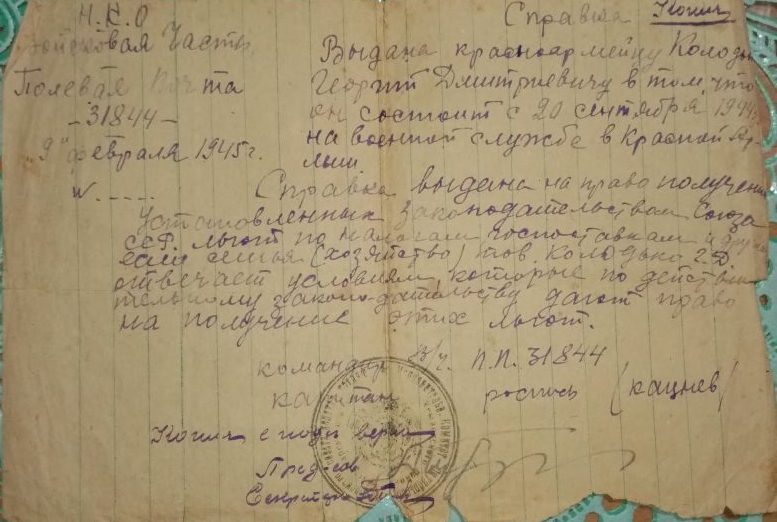 Н.К.О
Справка Копия
Войсковая Часть
Выдана красноармейцу Колодько
Полевая Почта
Георгий Дмитриевичу в том, что
-31844-
он состоит с 20 сентября 1944г
„9" февраля 1945г.
на военной службе в Красной Ар-
мии
N.....
Справка выдана на право получения
установленных законодательством Союза
ССР. льгот по налогам госпоставкам и друг
если семья (хозяйство) тов. Колодько Г.Д
отвечает условиям, которые по действи
тельному законодательству дают право
на получение этих льгот.
командир в/ч. П.П. 31844
капитан роспись (Кацнев)
Копия с подл верна
Пред
Секретарь